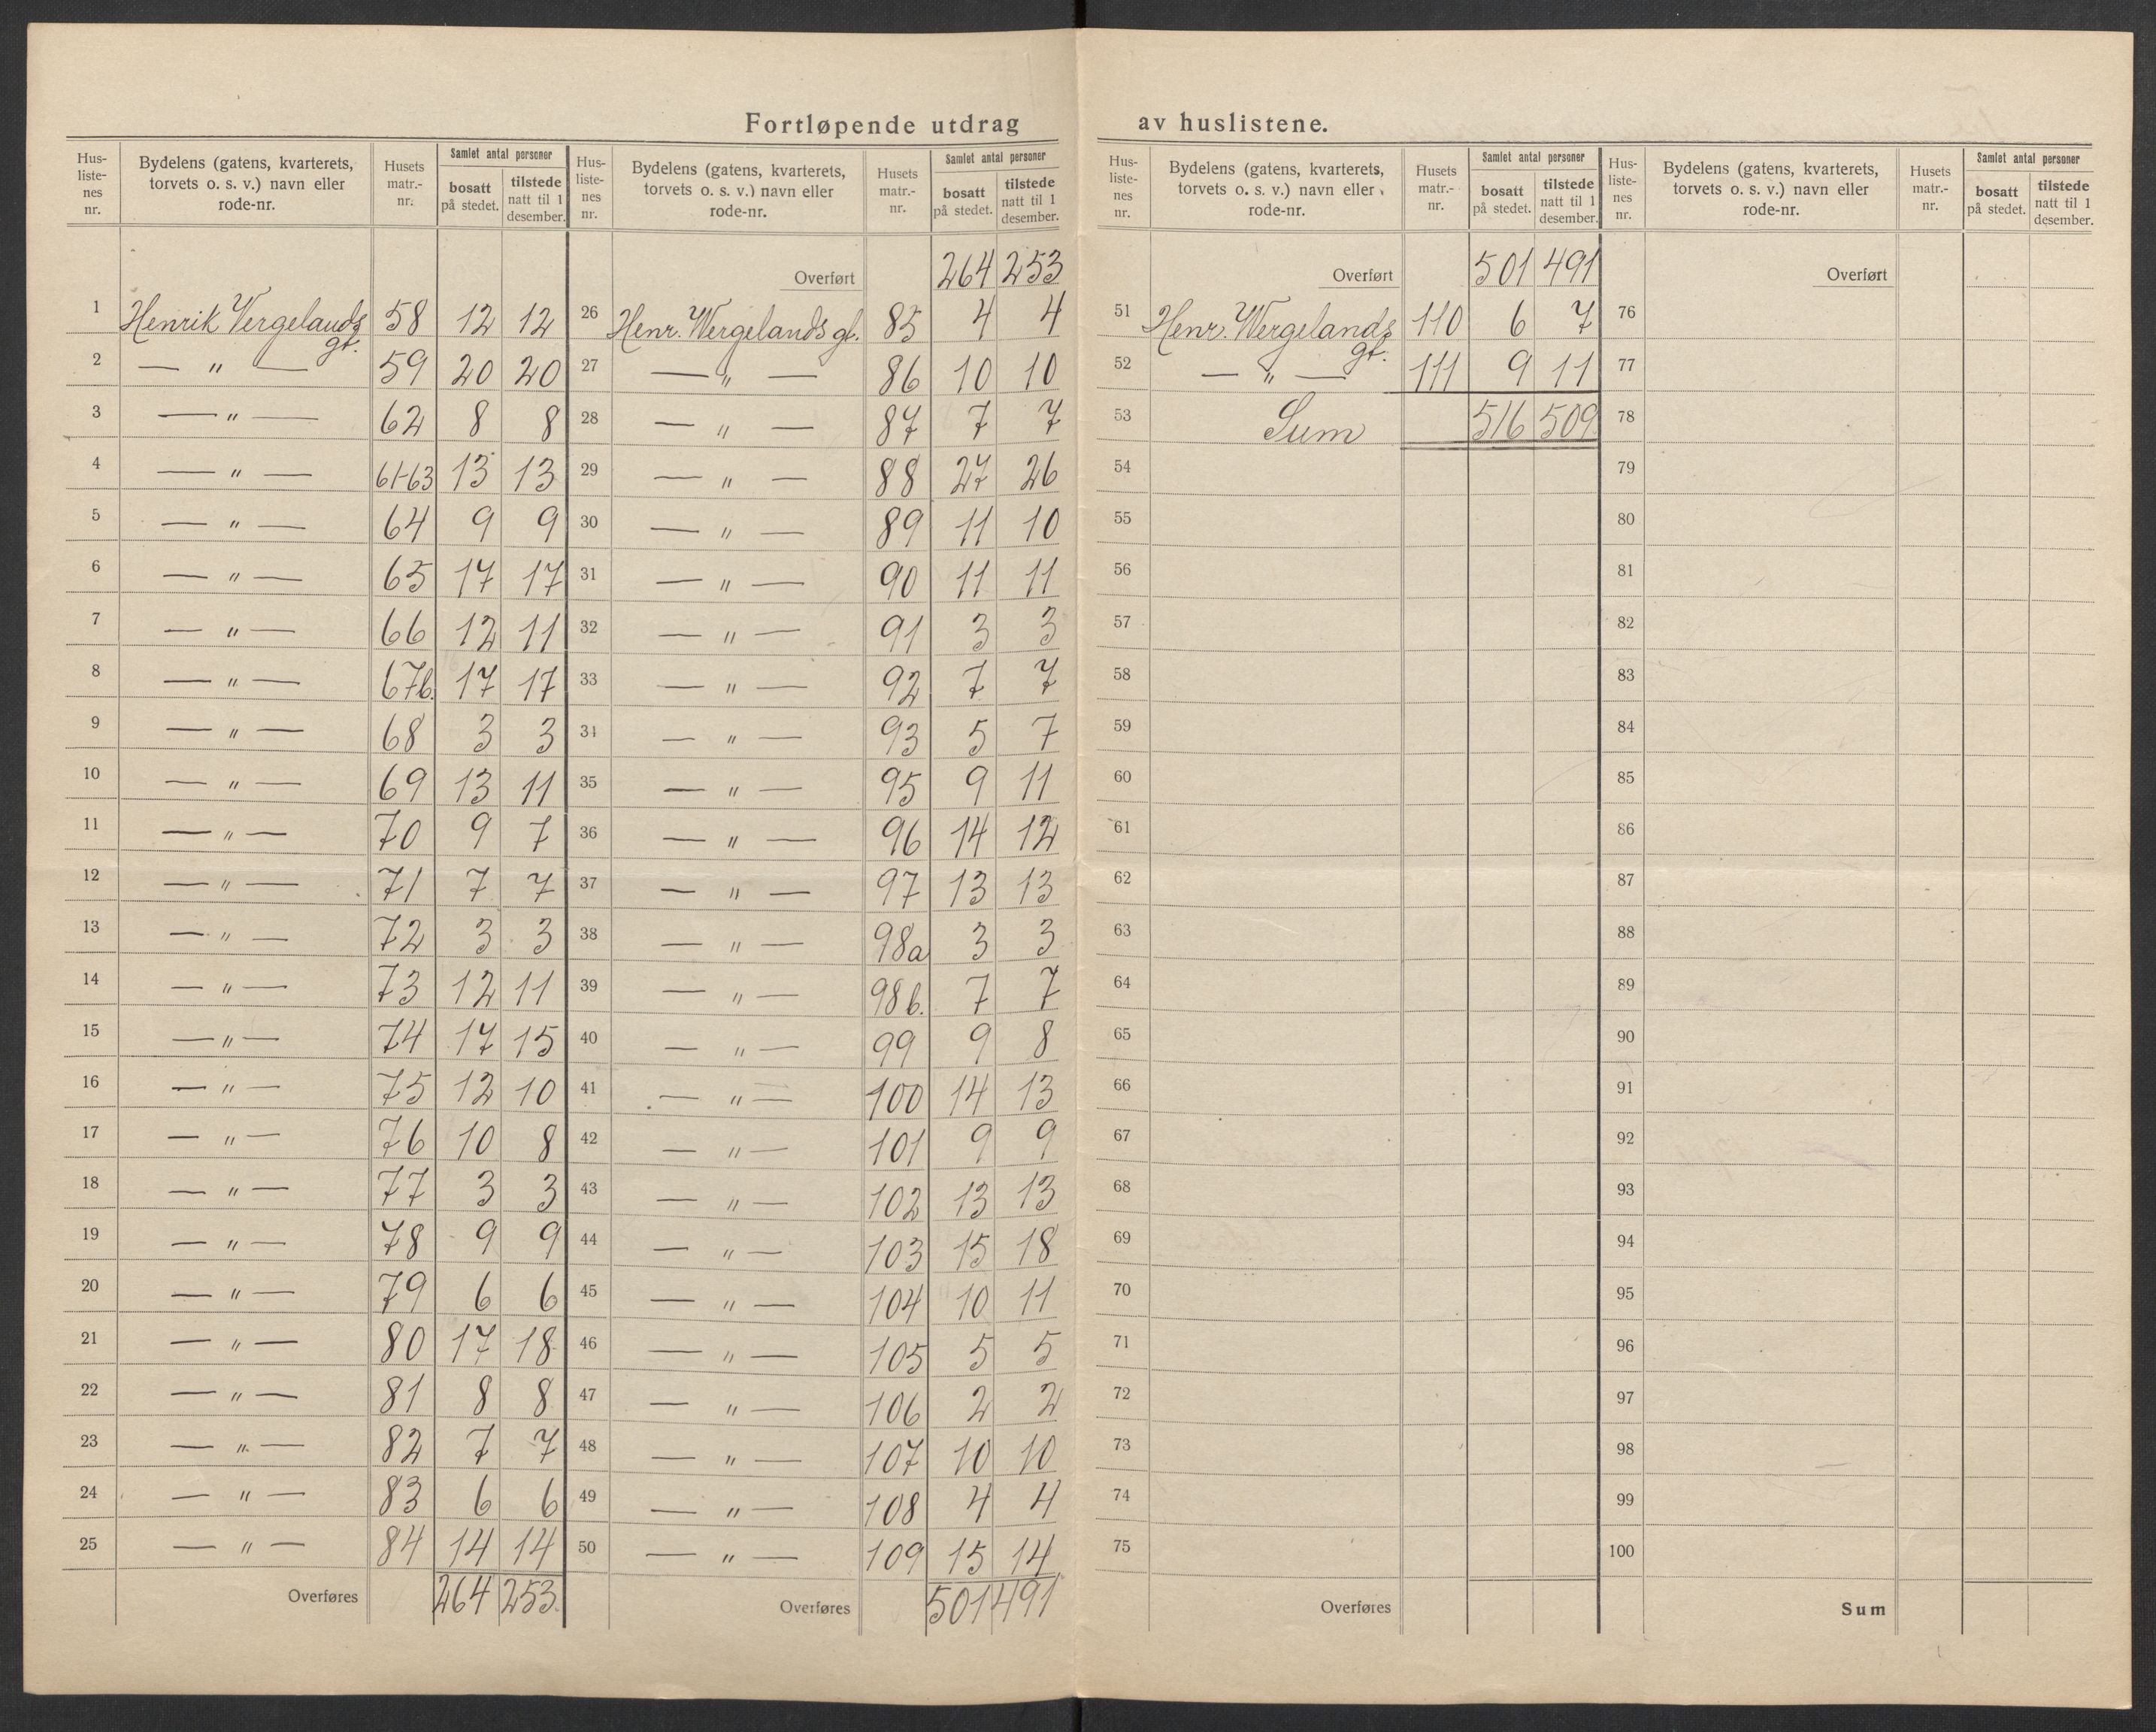 Fortløpende utdrag av huslistene.
Hus-listenes nr. | Bydelens (gatens, kvarterets, torvets o. s. v.) navn eller rode-nr. | Husets matr.-nr. | Samlet antal personer | bosatt på stedet. | tilstede natt til 1 desember.
1 Henrik Vergelands gt. 58 12 12
2 — " — 59 20 20
3 — " — 62 8 8
4 — " — 61-63 13 13
5 — " — 64 9 9
6 — " — 65 17 17
7 — " — 66 12 11
8 — " — 67b. 17 17
9 — " — 68 3 3
10 — " — 69 13 11
11 — " — 70 9 7
12 — " — 71 7 7
13 — " — 72 3 3
14 — " — 73 12 11
15 — " — 74 17 15
16 — " — 75 12 10
17 — " — 76 10 8
18 — " — 77 3 3
19 — " — 78 9 9
20 — " — 79 6 6
21 — " — 80 17 18
22 — " — 81 8 8
23 — " — 82 7 7
24 — " — 83 6 6
25 — " — 84 14 14
Overføres 264 253
Hus-listenes nr. | Bydelens (gatens, kvarterets, torvets o. s. v.) navn eller rode-nr. | Husets matr.-nr. | Samlet antal personer | bosatt på stedet. | tilstede natt til 1 desember.
Overført 264 253
26 Henr. Wergelands gt. 85 4 4
27 — " — 86 10 10
28 — " — 87 7 7
29 — " — 88 27 26
30 — " — 89 11 10
31 — " — 90 11 11
32 — " — 91 3 3
33 — " — 92 7 7
34 — " — 93 5 7
35 — " — 95 9 11
36 — " — 96 14 12
37 — " — 97 13 13
38 — " — 98a 3 3
39 — " — 98b. 7 7
40 — " — 99 9 8
41 — " — 100 14 13
42 — " — 101 9 9
43 — " — 102 13 13
44 — " — 103 15 18
45 — " — 104 10 11
46 — " — 105 5 5
47 — " — 106 2 2
48 — " — 107 10 10
49 — " — 108 4 4
50 — " — 109 15 14
Overføres 501 491
Hus-listenes nr. | Bydelens (gatens, kvarterets, torvets o. s. v.) navn eller rode-nr. | Husets matr.-nr. | Samlet antal personer | bosatt på stedet. | tilstede natt til 1 desember.
Overført 501 491
51 Henr. Wergelands gt. 110 6 7
52 — " — 111 9 11
53 Sum 516 509
54
55
56
57
58
59
60
61
62
63
64
65
66
67
68
69
70
71
72
73
74
75
Overføres
Hus-listenes nr. | Bydelens (gatens, kvarterets, torvets o. s. v.) navn eller rode-nr. | Husets matr.-nr. | Samlet antal personer | bosatt på stedet. | tilstede natt til 1 desember.
Overført
76
77
78
79
80
81
82
83
84
85
86
87
88
89
90
91
92
93
94
95
96
97
98
99
100
Sum